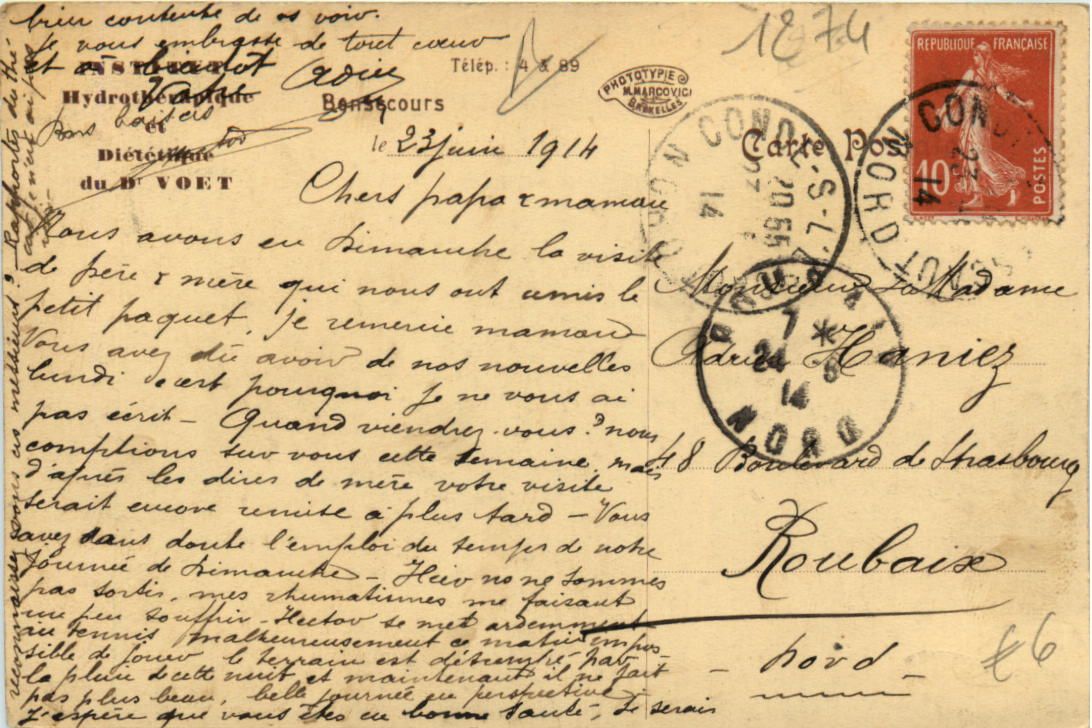 bien contente de vs voir.
Je vous embrasse de tout cœur
et à bientôt
Bons baisers
Hector
INSTITUT
Hydrothérapique
et
Diététique
du Dr VOET
Télép. : 4 & 89
Bonsecours
le 23 juin 1914
Chers papa & maman
Nous avons eu Dimanche la visite
de père & mère qui nous ont remis le
petit paquet, je remercie maman
Vous avez dû avoir de nos nouvelles
lundi c'est pourquoi je ne vous ai
pas écrit - Quand viendrez-vous? nous
comptions sur vous cette semaine mais
d'après les dires de mère votre visite
serait encore remise à plus tard - Vous
avez sans doute l'emploi du temps de notre
journée de Dimanche - Hier ns ne sommes
pas sortis, mes rhumatismes me faisant
un peu souffrir - Hector se met ardemment
au tennis malheureusement ce matin impos-
sible de jouer le terrain est détrempé par
la pluie de cette nuit et maintenant il ne fait
pas plus beau, belle journée en perspective
J'espère que vous êtes en bonne santé, Je serais
reconnaissez vous ces messieurs?
PHOTOTYPIE
M. MARCOVICI
BRUXELLES
Carte Pos
1874
REPUBLIQUE FRANÇAISE
10c
POSTES
COND -S-L'
20 55
23
14
NORD
COND
23
14
NORD
ROUBAIX
7 *
24 6
14
NORD
Monsieur & Madame
Adrien Haniez
48 Boulevard de Strasbourg
Roubaix
- Nord -
€6